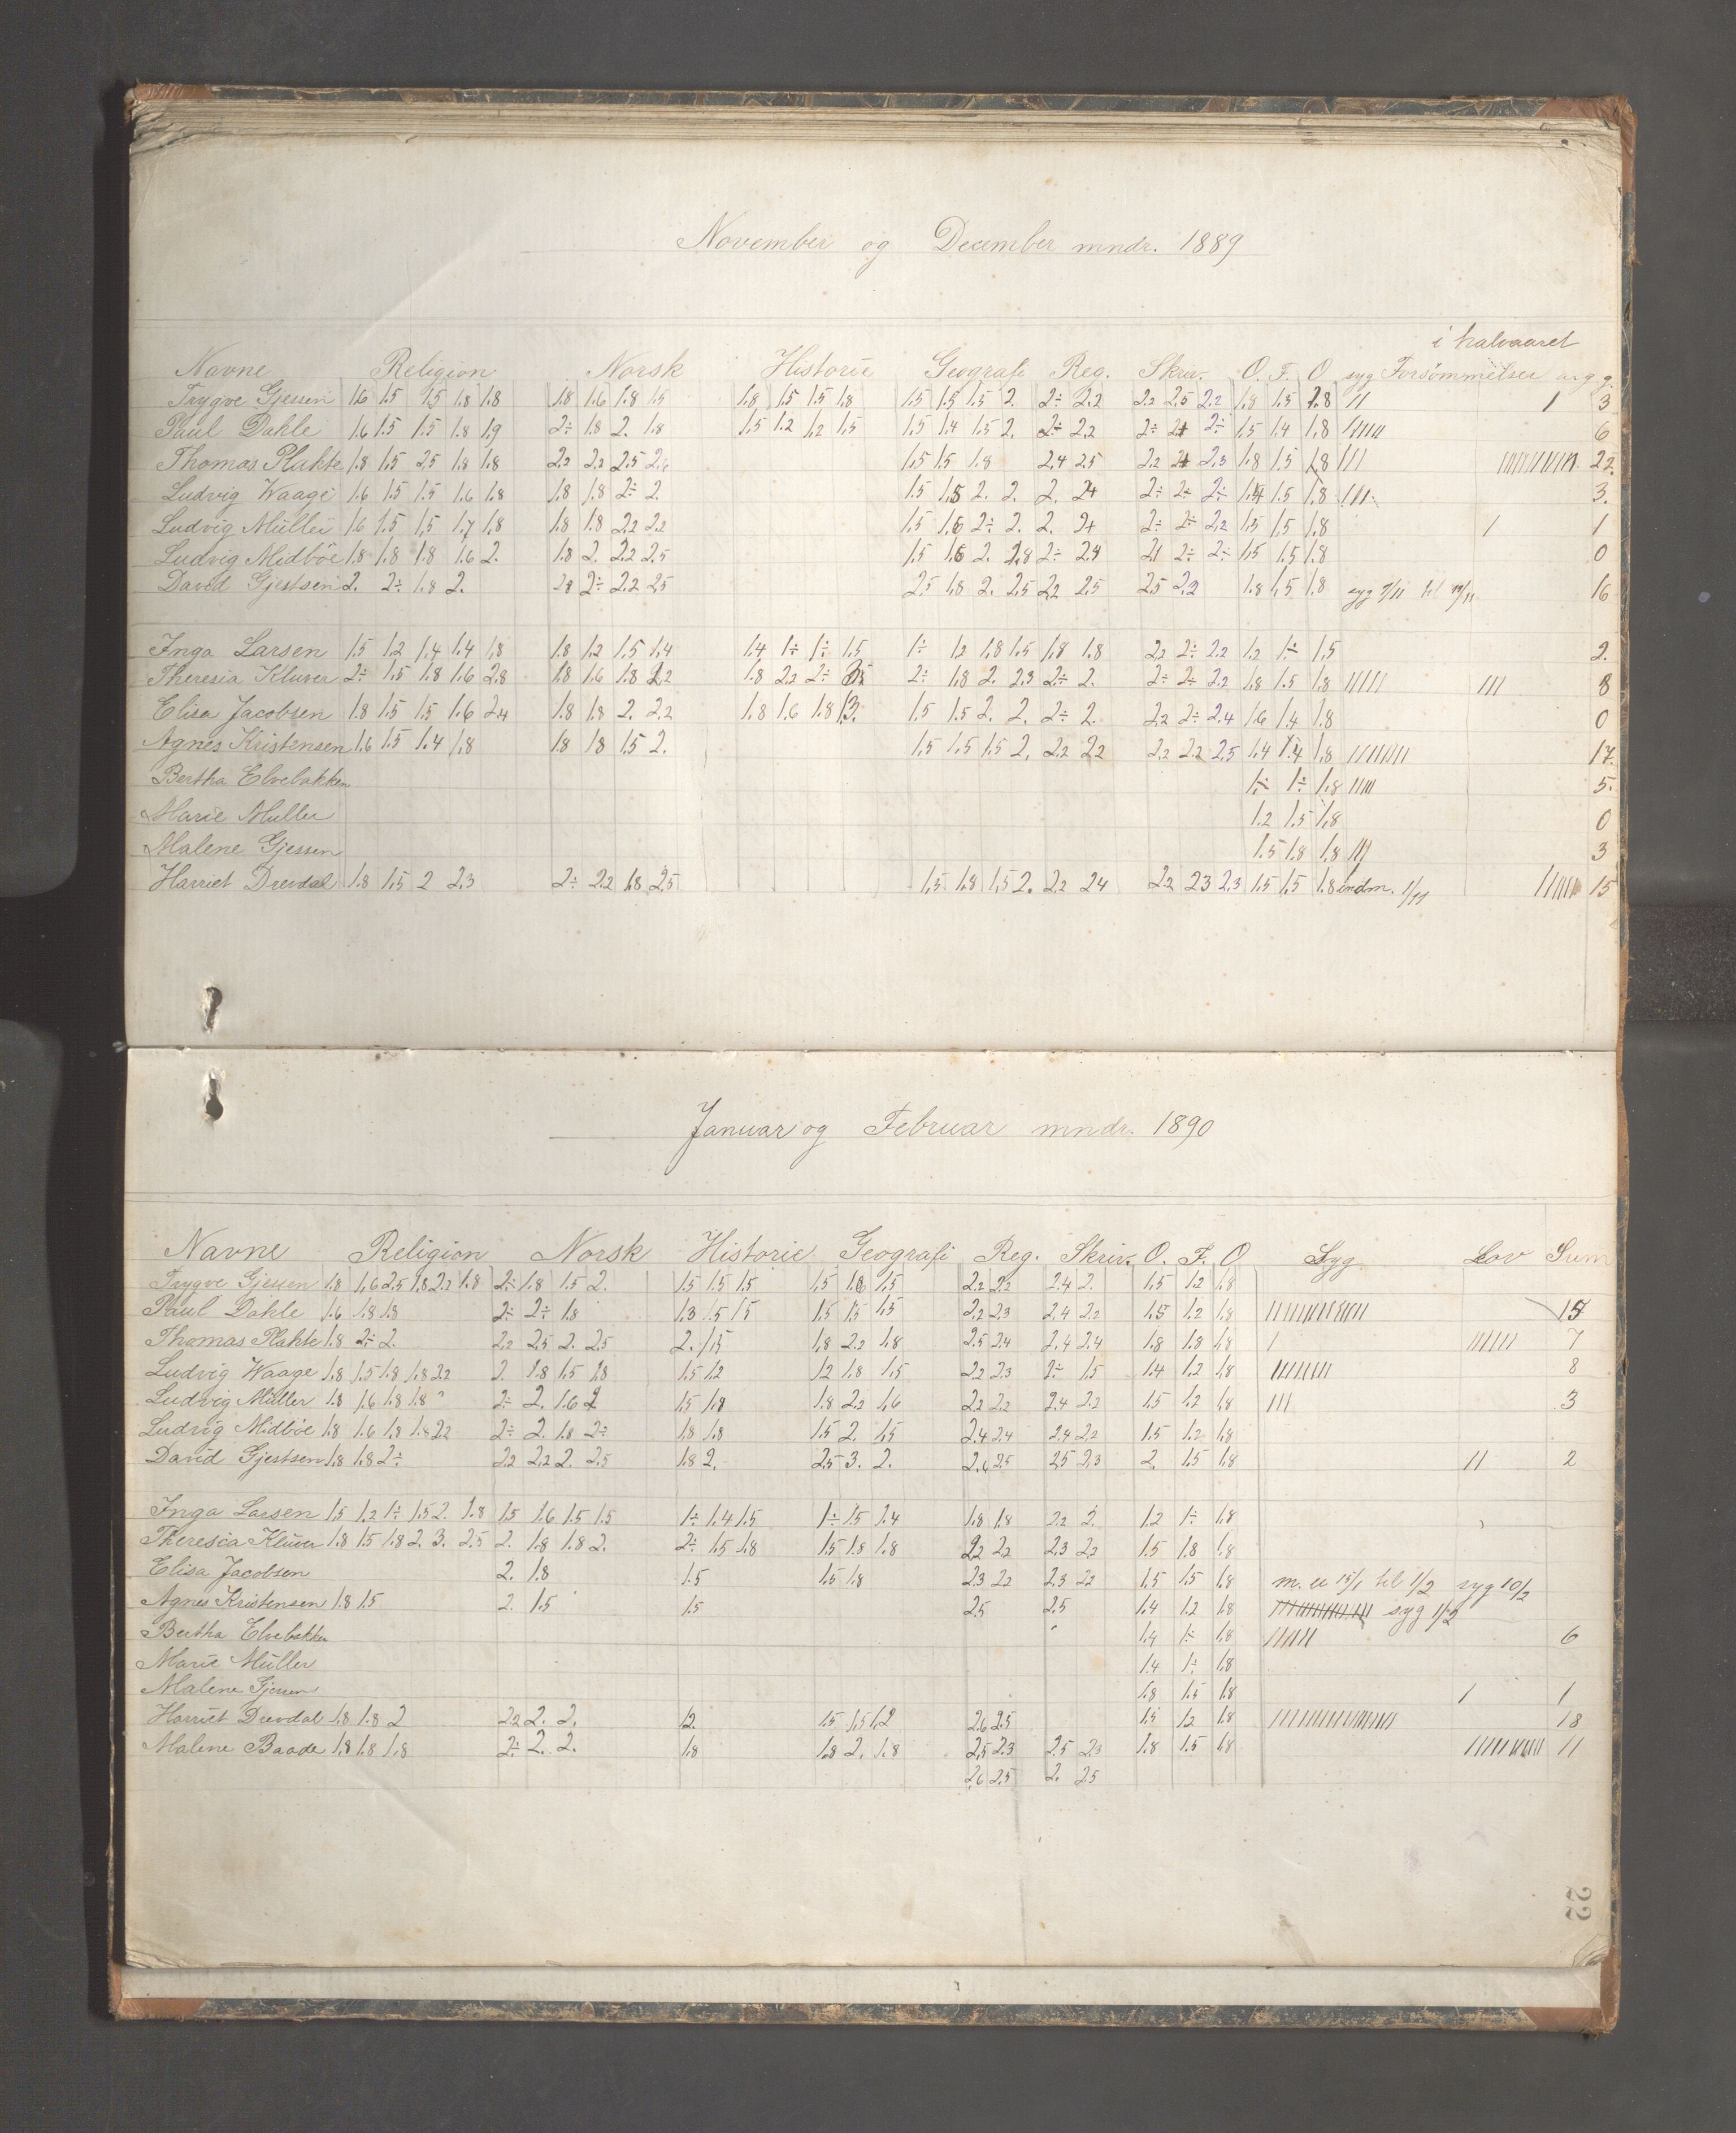 November og December mndr. 1889
i halvaaret
Navne Religion Norsk Historie Geografi Reg. Skriv. O. F. O. syg Forsömmelser
Trygve Gjessen 1.6 1.5 1.5 1.8 1.8 1.8 1.6 1.8 1.5 1.8 1.5 1.5 1.8 1.5 1.5 1.5 2. 2÷ 2.2 2.2 2.5 2.2 1.8 1.5 1.8 11 1 3
Paul Dahle 1.6 1.5 1.5 1.8 1.9 2÷ 1.8 2. 1.8 1.5 1.2 1.2 1.5 1.5 1.4 1.5 2. 2÷ 2.2 2÷ 2+ 2÷ 1.5 1.4 1.8 11111 6
Thomas Plahte 1.8 1.5 2.5 1.8 1.8 2.2 2.2 2.5 2.6 1.5 1.5 1.8 2.4 2.5 2.2 2+ 2.3 1.8 1.5 1.8 111 22.
Ludvig Waage 1.6 1.5 1.5 1.6 1.8 1.8 1.8 2÷ 2. 1.5 1.5 2. 2. 2. 2+ 2÷ 2÷ 2÷ 1.4 1.5 1.8 111. 3.
Ludvig Müller 1.6 1.5 1.5 1.7 1.8 1.8 1.8 2.2 2.2 1.5 1.6 2÷ 2. 2. 2+ 2÷ 2÷ 2.2 1.5 1.5 1.8 1 1
Ludvig Midböe 1.8 1.8 1.8 1.6 2. 1.8 2. 2.2 2.5 1.5 1.6 2. 1.8 2÷ 2.4 2.1 2÷ 2÷ 1.5 1.5 1.8 0
David Gjestsen 2. 2÷ 1.8 2. 2.8 2÷ 2.2 2.5 2.5 1.8 2. 2.5 2.2 2.5 2.5 2.2 1.8 1.5 1.8 syg 7/11 til 19/11 16
Inga Larsen 1.5 1.2 1.4 1.4 1.8 1.8 1.2 1.5 1.4 1.4 1÷ 1÷ 1.5 1÷ 1.2 1.8 1.5 1.8 1.8 2.2 2÷ 2.2 1.2 1÷ 1.5 2.
Theresia Klüver 2÷ 1.5 1.8 1.6 2.8 1.8 1.6 1.8 2.2 1.8 2.2 2÷ 2÷ 1.8 2. 2.3 2÷ 2. 2÷ 2÷ 2.2 1.8 1.5 1.8 11111 111 8
Elisa Jacobsen 1.8 1.5 1.5 1.6 2.4 1.8 1.8 2. 2.2 1.8 1.6 1.8 1.3. 1.5 1.5 2. 2. 2÷ 2. 2.2 2÷ 2.4 1.6 1.4 1.8 0
Agnes Kristensen 1.6 1.5 1.4 1.8 1.8 1.8 1.5 2. 1.5 1.5 1.5 2. 2.2 2.2 2.2 2.2 2.5 1.4 1.4 1.8 11111111 17.
Bertha Elvebakken 1÷ 1÷ 1.8 11111 5.
Marie Müller 1.2 1.5 1.8 0
Malene Gjessen 1.5 1.8 1.8 111 3
Harriet Drevdal 1.8 1.5 2 2.3 2÷ 2.2 1.8 2.5 1.5 1.8 1.5 2. 2.2 2.4 2.2 2.3 2.3 1.5 1.5 1.8 indm. 1/11 15
Januar og Februar mndr. 1890
Navne Religion Norsk Historie Geografi Reg. Skriv. O. F. O Syg Lov Sum
Trygve Gjessen 1.8 1.6 2.5 1.8 2.2 1.8 2÷ 1.8 1.5 2. 1.5 1.5 1.5 1.5 1.6 1.5 2.2 2.2 2.4 2. 1.5 1.2 1.8
Paul Dahle 1.6 1.8 1.8 2÷ 2÷ 1.8 1.3 1.5 1.5 1.5 1.5 1.5 2.2 2.3 2.4 2.2 1.5 1.2 1.8 15
Thomas Plahte 1.8 2÷ 2. 2.2 2.5 2. 2.5 2. 1.5 1.8 2.2 1.8 2.5 2.4 2.4 2.4 1.8 1.8 1.8 1 111111 7
Ludvig Waage 1.8 1.5 1.8 1.8 2.2 2. 1.8 1.5 1.8 1.5 1.2 1.2 1.8 1.5 2.2 2.3 2÷ 1.5 1.4 1.2 1.8 11111111 8
Ludvig Müller 1.8 1.6 1.8 1.8 2÷ 2. 1.6 2 1.5 1.8 1.8 2.2 1.6 2.2 2.2 2.4 2.2 1.5 1.2 1.8 111 3
Ludvig Midböe 1.8 1.6 1.8 1.8 2.2 2÷ 2. 1.8 2÷ 1.8 1.8 1.5 2. 1.5 2.4 2.4 2.4 2.2 1.5 1.2 1.8
David Gjestsen 1.8 1.8 2÷ 2.2 2.2 2. 2.5 1.8 2. 2.5 3. 2. 2.6 2.5 2.5 2.3 2. 1.5 1.8 11 2
Inga Larsen 1.5 1.2 1÷ 1.5 2. 1.8 1.5 1.6 1.5 1.5 1÷ 1.4 1.5 1÷ 1.5 1.4 1.8 1.8 2.2 2. 1.2 1÷ 1.8
Theresia Klüver 1.8 1.5 1.8 2. 3. 2.5 2. 1.8 1.8 2. 2÷ 1.5 1.8 1.5 1.8 1.8 2.2 2.2 2.3 2.2 1.5 1.8 1.8
Elisa Jacobsen 2. 1.8 1.5 1.5 1.8 2.3 2.2 2.3 2.2 1.5 1.5 1.8 15/1 til 1/2 syg 10/2
Agnes Kristensen 1.8 1.5 2. 1.5 1.5 2.5 2.5 1.4 1.2 1.8 syg 1/2
Bertha Elvebakken 1.4 1÷ 1.8 111111 6
Marie Müller 1.4 1÷ 1.8
Malene Gjessen 1.8 1.5 1.8 1 1
Harriet Drevdal 1.8 1.8 2 2.2 2. 2. 1.2. 1.5 1.5 1.2 2.6 2.5 1.5 1.2 1.8 18
Malene Baade 1.8 1.8 1.8 2÷ 2. 2. 1.8 1.8 2. 1.8 2.5 2.3 2.5 2.3 1.8 1.5 1.8 11
2.6 2.5 2. 2.5
22